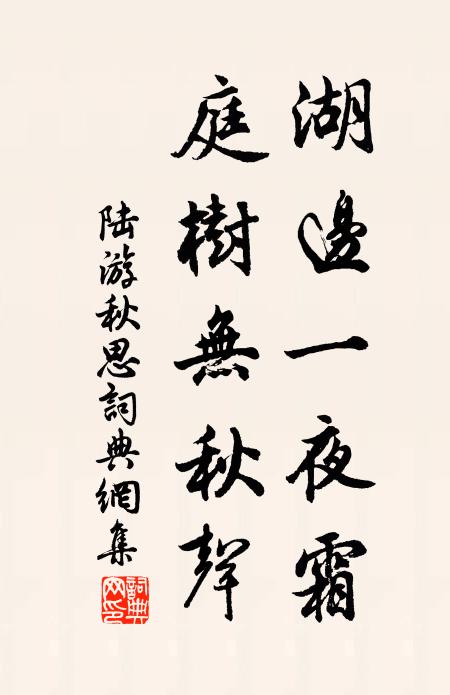 湖邊一夜霜
庭樹無秋聲
陆游秋思詞典網集
詞典网印